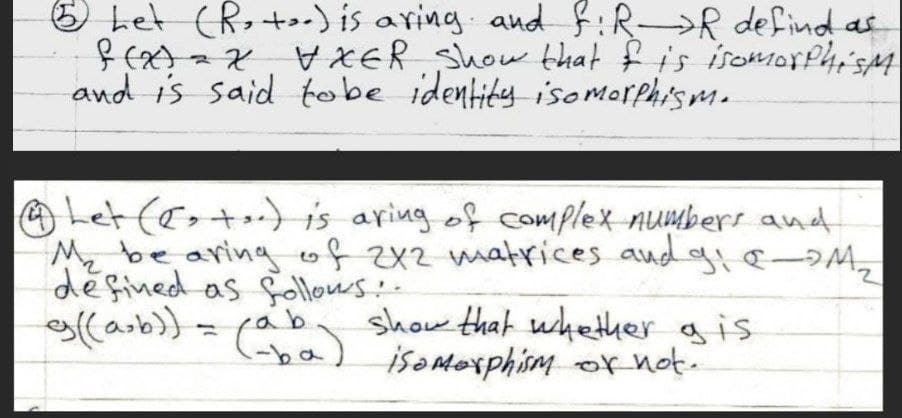 ⑤ Let (R,+,.) is aring. and f:R→R defind as
f(x) = x ∀ x∈R show that f is isomorphism
and is said tobe identity isomorphism.
④ Let (ℂ,+,.) is aring of complex numbers and
M₂ be aring of 2x2 matrices and g: ℂ→M₂
defined as follows:-
g((a,b)) = (a b show that whether g is
-b a) isomorphism or not.